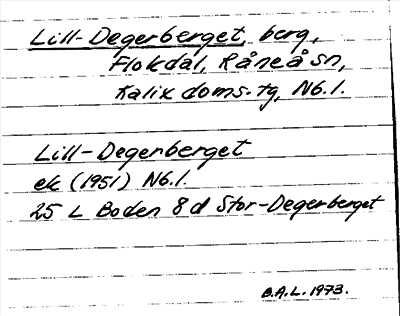 Lill-Degerberget, berg,
Flokdal, Råneå sn,
Kalix doms. tg, Nb.l.
Lill-Degerberget
ek (1951) Nb.l.
25 L Boden 8d Stor-Degerberget
B.A.L. 1973.